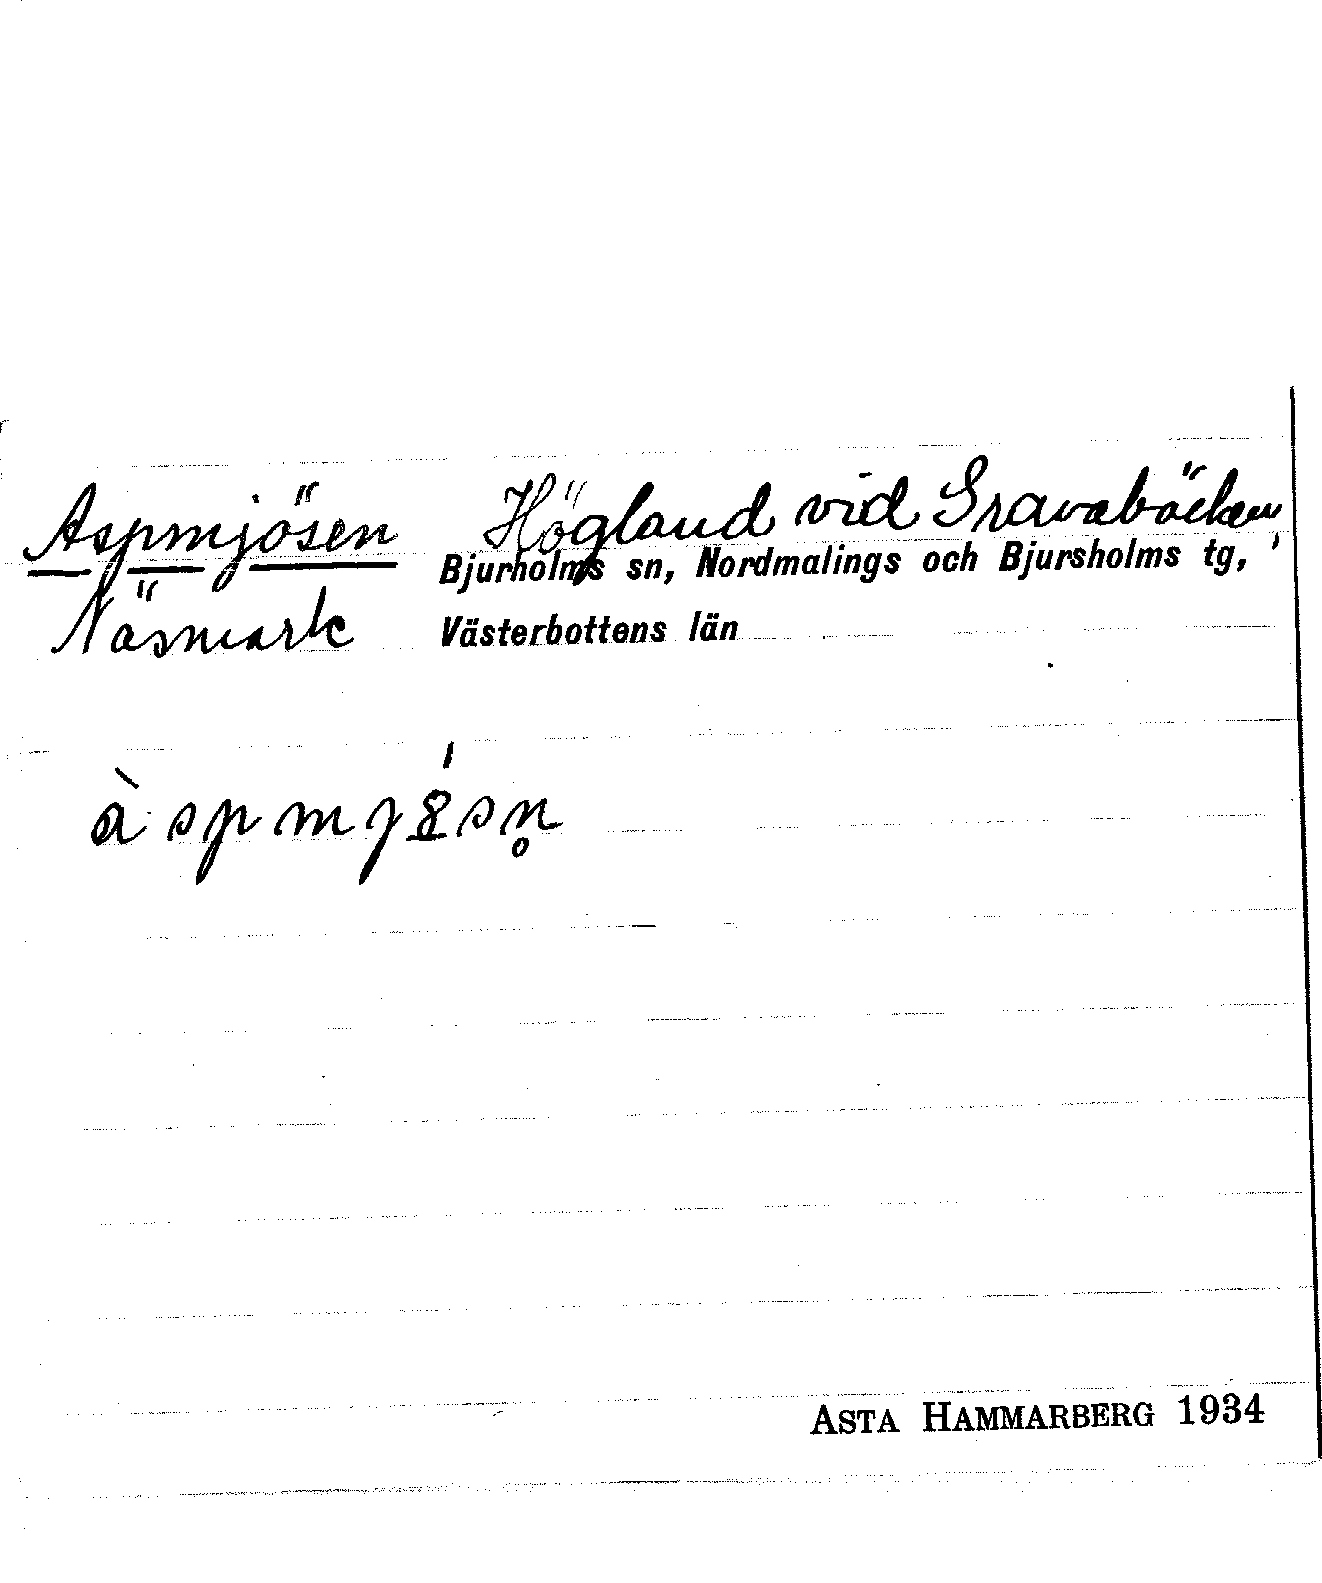 Aspmjösen Högland vid Gravabäcken
Bjurholms sn, Nordmalings och Bjursholms tg,
Näsmark Västerbottens län
àspmjözsn̥
ASTA HAMMARBERG 1934